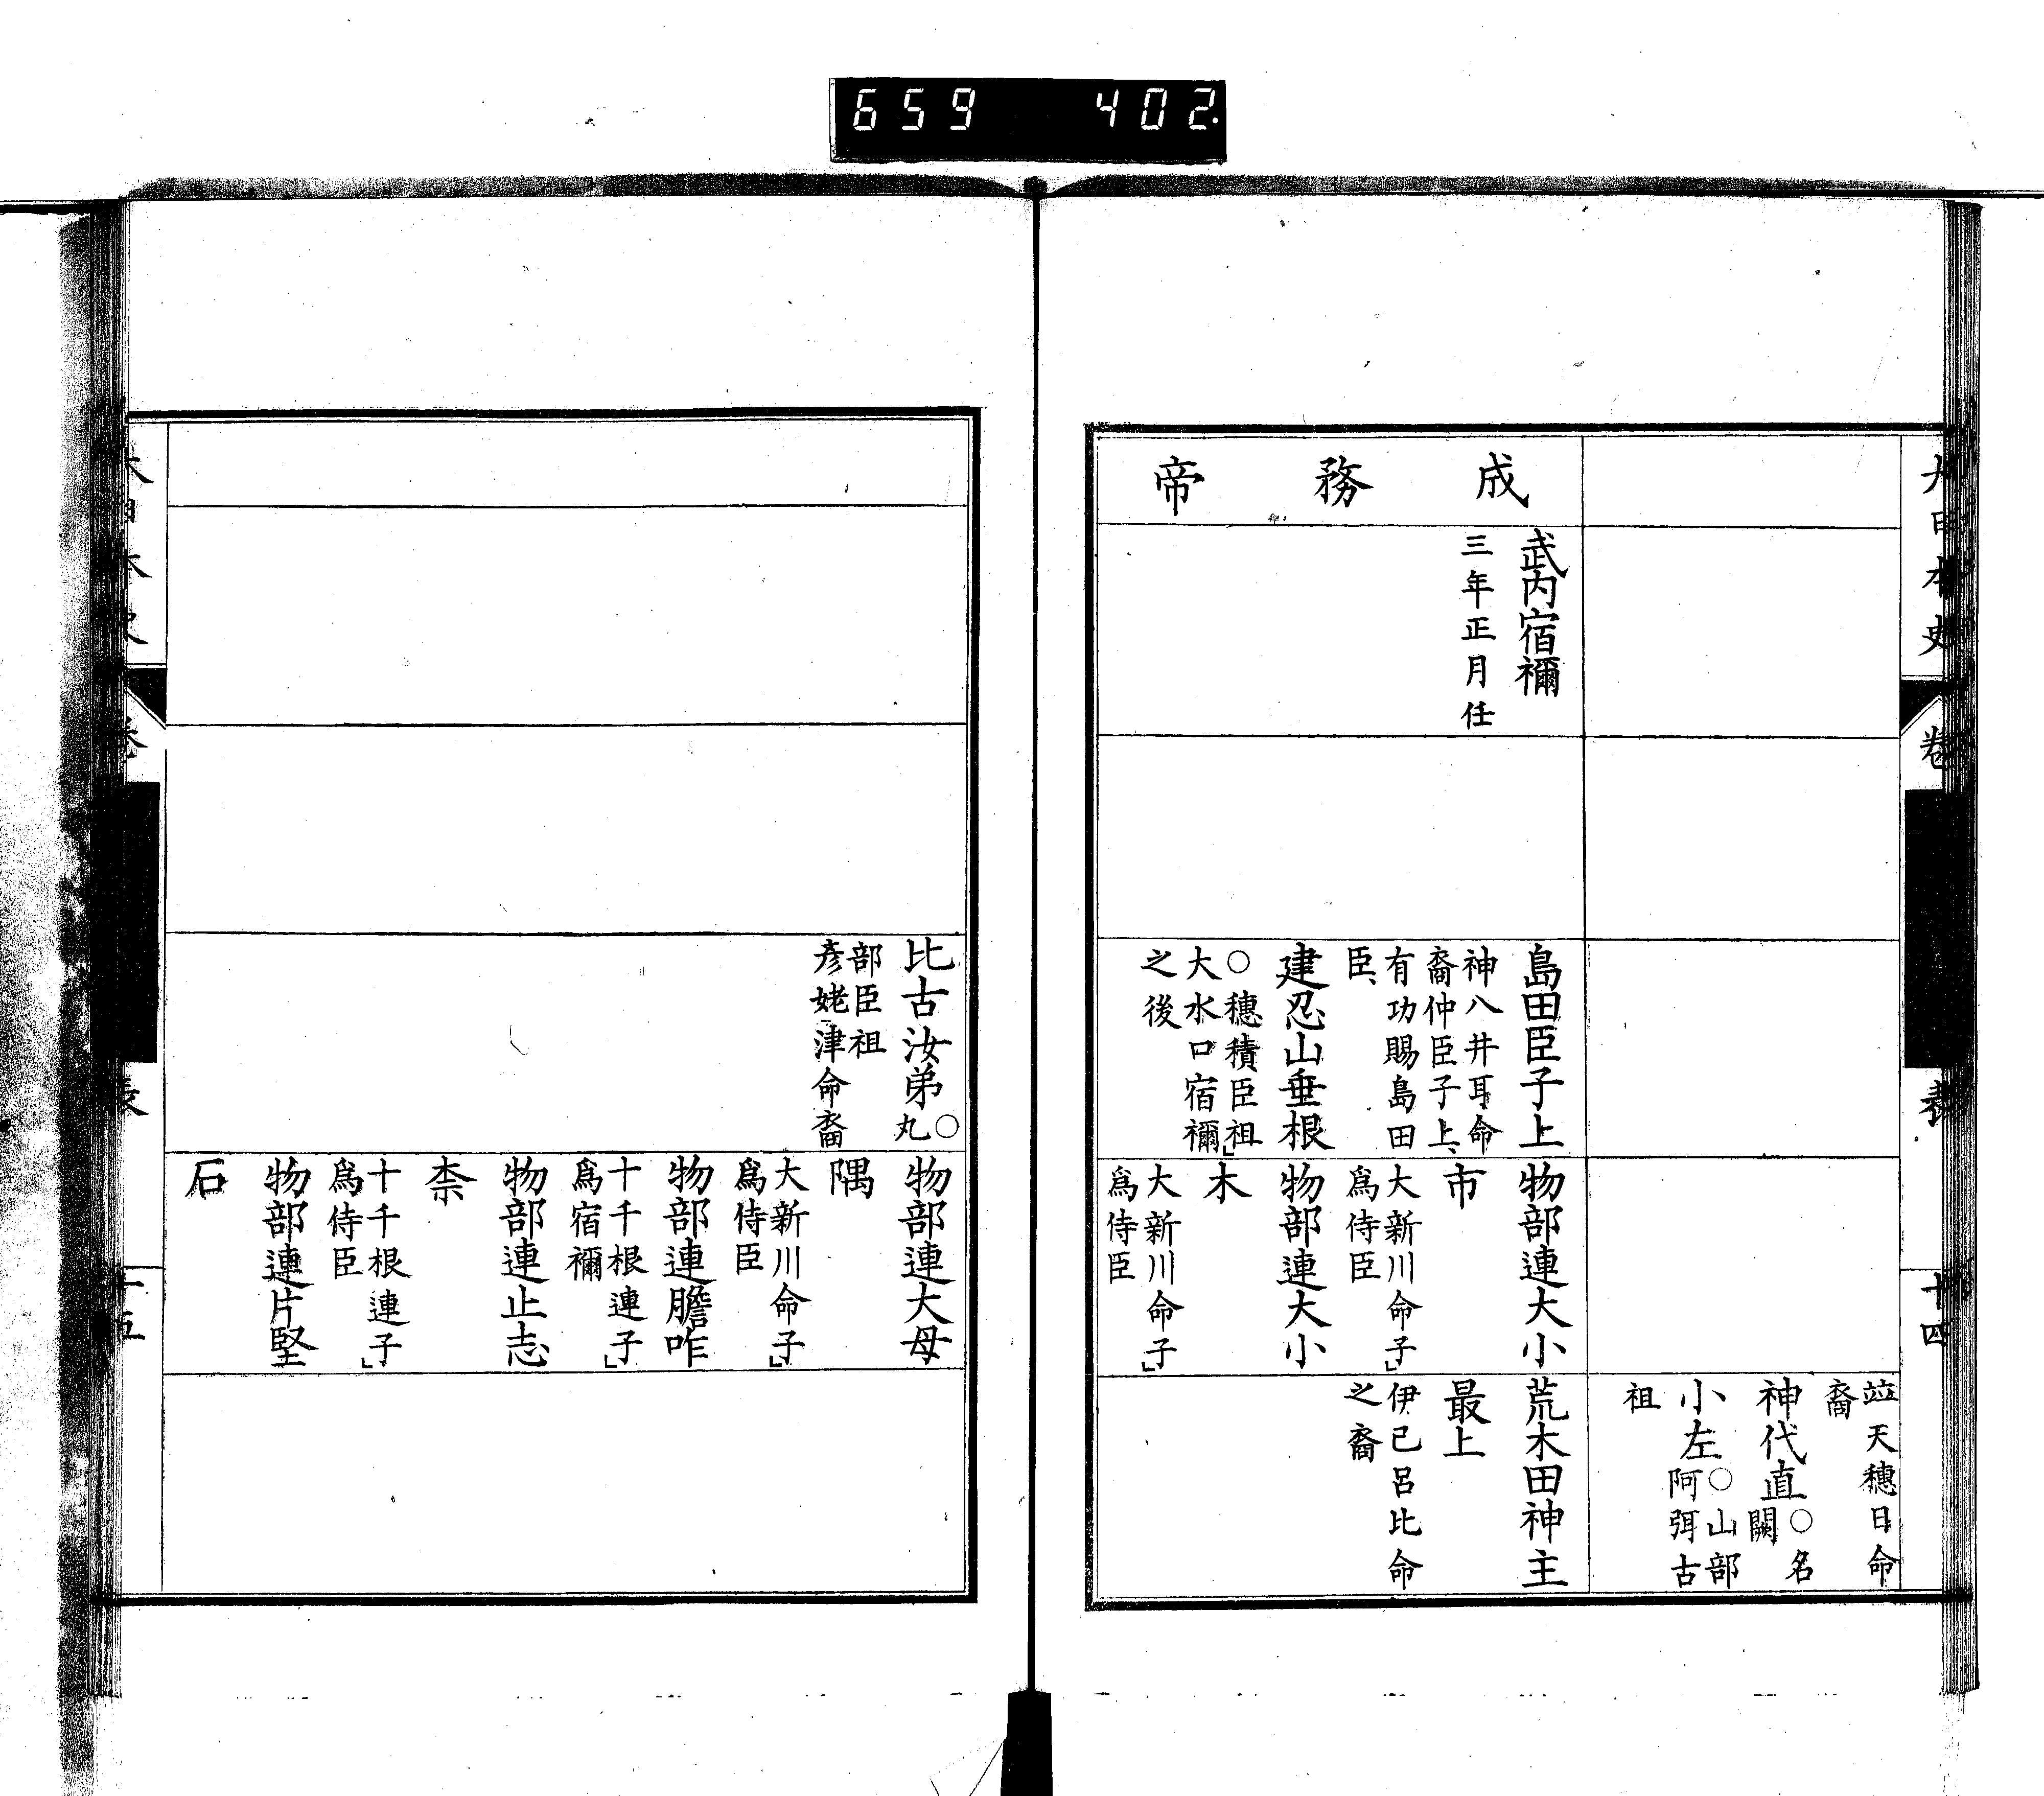 659 402.
大日本史
卷
表
十四
竝天穗日命
裔
神代直○名
闕
小左○山部
阿弭古
祖
成務帝
武內宿禰
三年正月任
島田臣子上
神八井耳命
裔仲臣子上、
有功賜島田
臣、
建忍山垂根
○穗積臣祖」
大水口宿禰
之後
物部連大小
市
大新川命子」
爲侍臣
物部連大小
木
大新川命子」
爲侍臣
荒木田神主
最上
伊己呂比命
之裔
比古汝弟○
丸
部臣祖
彥姥津命裔
物部連大母
隅
大新川命子」
爲侍臣
物部連膽咋
十千根連子」
爲宿禰
物部連止志
柰
十千根連子」
爲侍臣
物部連片堅
石
大日本史
卷
表
十五